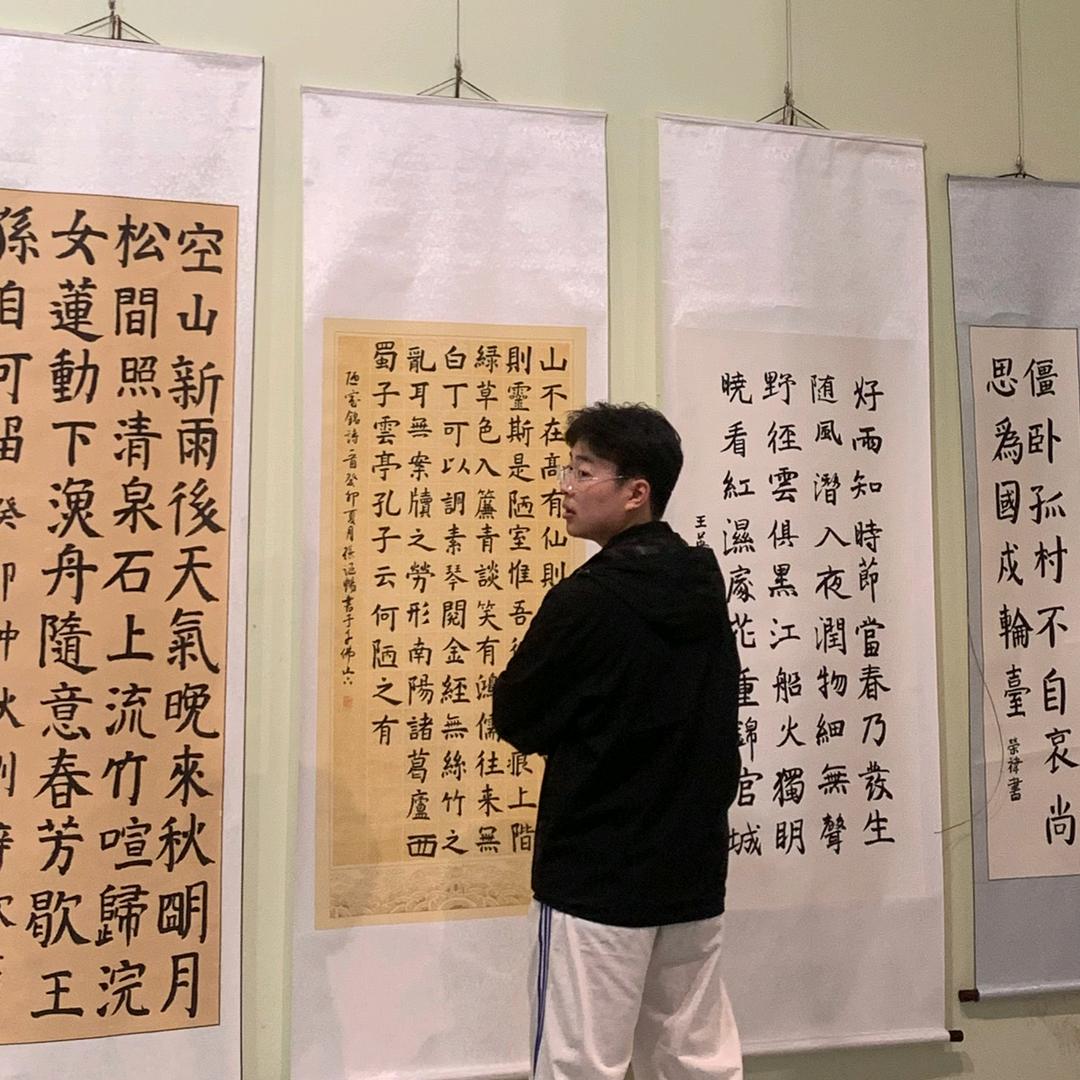 空山新雨後天氣晚來秋朙月
松間照清泉石上流竹喧歸浣
女蓮動下漁舟隨意春芳歇王
孫自可留癸卯仲秋
山不在高有仙則
則靈斯是陋室惟吾痕上階
綠草色入簾青談笑有鴻儒往来無
白丁可以調素琴閱金經無絲竹之
亂耳無案牘之勞形南陽諸葛廬西
蜀子雲亭孔子云何陋之有
陋室銘詩一首癸卯夏月孫書于千佛山
好雨知時節當春乃發生
随風潛入夜潤物細無聲
野徑雲俱黑江船火獨明
曉看紅濕處花重錦官城
王
僵卧孤村不自哀尚
思爲國戍輪臺
榮禕書